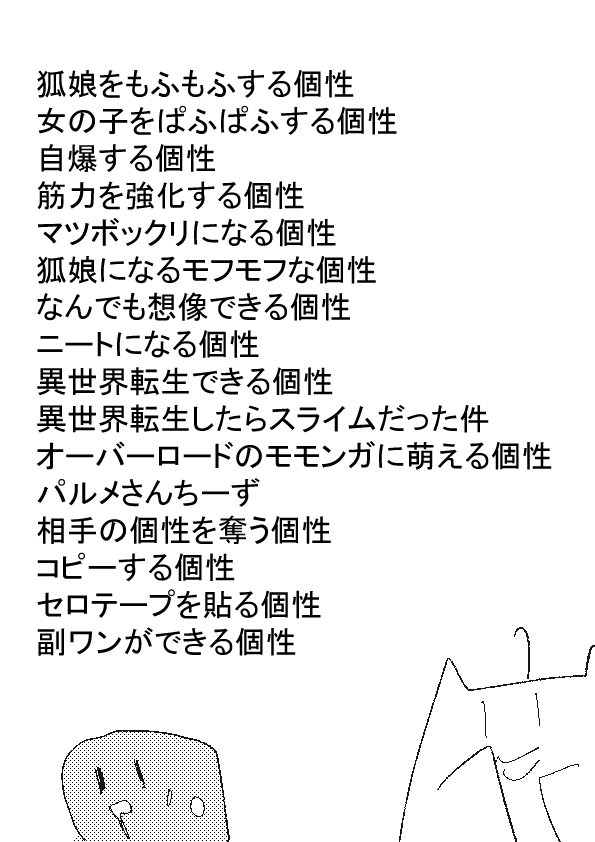 狐娘をもふもふする個性
女の子をぱふぱふする個性
自爆する個性
筋力を強化する個性
マツボックリになる個性
狐娘になるモフモフな個性
なんでも想像できる個性
ニートになる個性
異世界転生できる個性
異世界転生したらスライムだった件
オーバーロードのモモンガに萌える個性
パルメさんちーず
相手の個性を奪う個性
コピーする個性
セロテープを貼る個性
副ワンができる個性